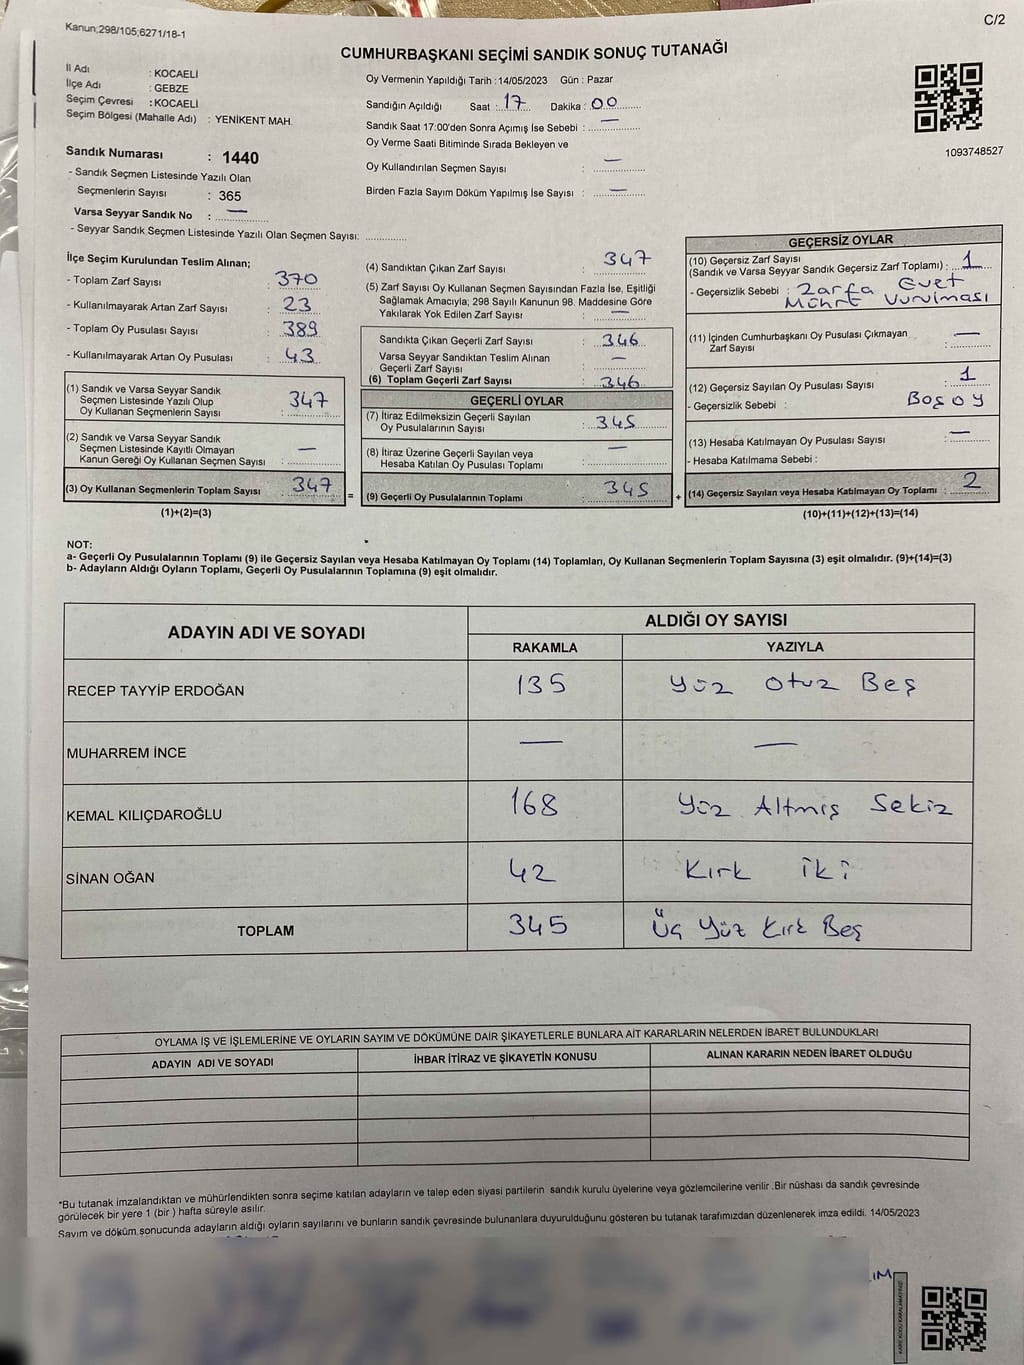 Kanun;298/105;6271/18-1
C/2
CUMHURBAŞKANI SEÇİMİ SANDIK SONUÇ TUTANAĞI
İl Adı : KOCAELİ
İlçe Adı : GEBZE
Seçim Çevresi : KOCAELİ
Seçim Bölgesi (Mahalle Adı) : YENİKENT MAH.
Oy Vermenin Yapıldığı Tarih : 14/05/2023 Gün : Pazar
Sandığın Açıldığı Saat : 17 Dakika : 00
Sandık Saat 17:00'den Sonra Açımış İse Sebebi : —
Oy Verme Saati Bitiminde Sırada Bekleyen ve
Oy Kullandırılan Seçmen Sayısı : —
Birden Fazla Sayım Döküm Yapılmış İse Sayısı : —
1093748527
Sandık Numarası : 1440
- Sandık Seçmen Listesinde Yazılı Olan
Seçmenlerin Sayısı : 365
Varsa Seyyar Sandık No : —
- Seyyar Sandık Seçmen Listesinde Yazılı Olan Seçmen Sayısı: ..............
İlçe Seçim Kurulundan Teslim Alınan;
- Toplam Zarf Sayısı : 370
- Kullanılmayarak Artan Zarf Sayısı : 23
- Toplam Oy Pusulası Sayısı : 389
- Kullanılmayarak Artan Oy Pusulası : 43
(1) Sandık ve Varsa Seyyar Sandık
Seçmen Listesinde Yazılı Olup
Oy Kullanan Seçmenlerin Sayısı : 347
(2) Sandık ve Varsa Seyyar Sandık
Seçmen Listesinde Kayıtlı Olmayan
Kanun Gereği Oy Kullanan Seçmen Sayısı : —
(3) Oy Kullanan Seçmenlerin Toplam Sayısı : 347 =
(1)+(2)=(3)
(4) Sandıktan Çıkan Zarf Sayısı : 347
(5) Zarf Sayısı Oy Kullanan Seçmen Sayısından Fazla İse, Eşitliği
Sağlamak Amacıyla; 298 Sayılı Kanunun 98. Maddesine Göre
Yakılarak Yok Edilen Zarf Sayısı : —
Sandıkta Çıkan Geçerli Zarf Sayısı : 346
Varsa Seyyar Sandıktan Teslim Alınan
Geçerli Zarf Sayısı : —
(6) Toplam Geçerli Zarf Sayısı : 346
GEÇERLİ OYLAR
(7) İtiraz Edilmeksizin Geçerli Sayılan
Oy Pusulalarının Sayısı : 345
(8) İtiraz Üzerine Geçerli Sayılan veya
Hesaba Katılan Oy Pusulası Toplamı : —
(9) Geçerli Oy Pusulalarının Toplamı : 345 +
GEÇERSİZ OYLAR
(10) Geçersiz Zarf Sayısı
(Sandık ve Varsa Seyyar Sandık Geçersiz Zarf Toplamı) : 1
- Geçersizlik Sebebi : Zarfa Evet
Mührü Vurulması
(11) İçinden Cumhurbaşkanı Oy Pusulası Çıkmayan
Zarf Sayısı : —
(12) Geçersiz Sayılan Oy Pusulası Sayısı : 1
- Geçersizlik Sebebi : Boş oy
(13) Hesaba Katılmayan Oy Pusulası Sayısı : —
- Hesaba Katılmama Sebebi :
(14) Geçersiz Sayılan veya Hesaba Katılmayan Oy Toplamı : 2
(10)+(11)+(12)+(13)=(14)
NOT:
a- Geçerli Oy Pusulalarının Toplamı (9) ile Geçersiz Sayılan veya Hesaba Katılmayan Oy Toplamı (14) Toplamları, Oy Kullanan Seçmenlerin Toplam Sayısına (3) eşit olmalıdır. (9)+(14)=(3)
b- Adayların Aldığı Oyların Toplamı, Geçerli Oy Pusulalarının Toplamına (9) eşit olmalıdır.
ADAYIN ADI VE SOYADI
ALDIĞI OY SAYISI
RAKAMLA YAZIYLA
RECEP TAYYİP ERDOĞAN 135 Yüz Otuz Beş
MUHARREM İNCE — —
KEMAL KILIÇDAROĞLU 168 Yüz Altmış Sekiz
SİNAN OĞAN 42 Kırk İki
TOPLAM 345 Üç Yüz Kırk Beş
OYLAMA İŞ VE İŞLEMLERİNE VE OYLARIN SAYIM VE DÖKÜMÜNE DAİR ŞİKAYETLERLE BUNLARA AİT KARARLARIN NELERDEN İBARET BULUNDUKLARI
ADAYIN ADI VE SOYADI İHBAR İTİRAZ VE ŞİKAYETİN KONUSU ALINAN KARARIN NEDEN İBARET OLDUĞU
*Bu tutanak imzalandıktan ve mühürlendikten sonra seçime katılan adayların ve talep eden siyasi partilerin sandık kurulu üyelerine veya gözlemcilerine verilir .Bir nüshası da sandık çevresinde
görülecek bir yere 1 (bir ) hafta süreyle asılır.
Sayım ve döküm sonucunda adayların aldığı oyların sayılarını ve bunların sandık çevresinde bulunanlara duyurulduğunu gösteren bu tutanak tarafımızdan düzenlenerek imza edildi. 14/05/2023